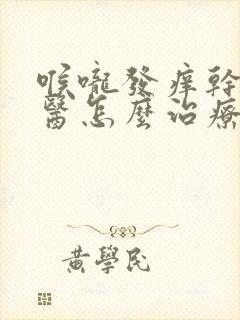 喉嚨發痒幹
醫怎麼治療
黃學民